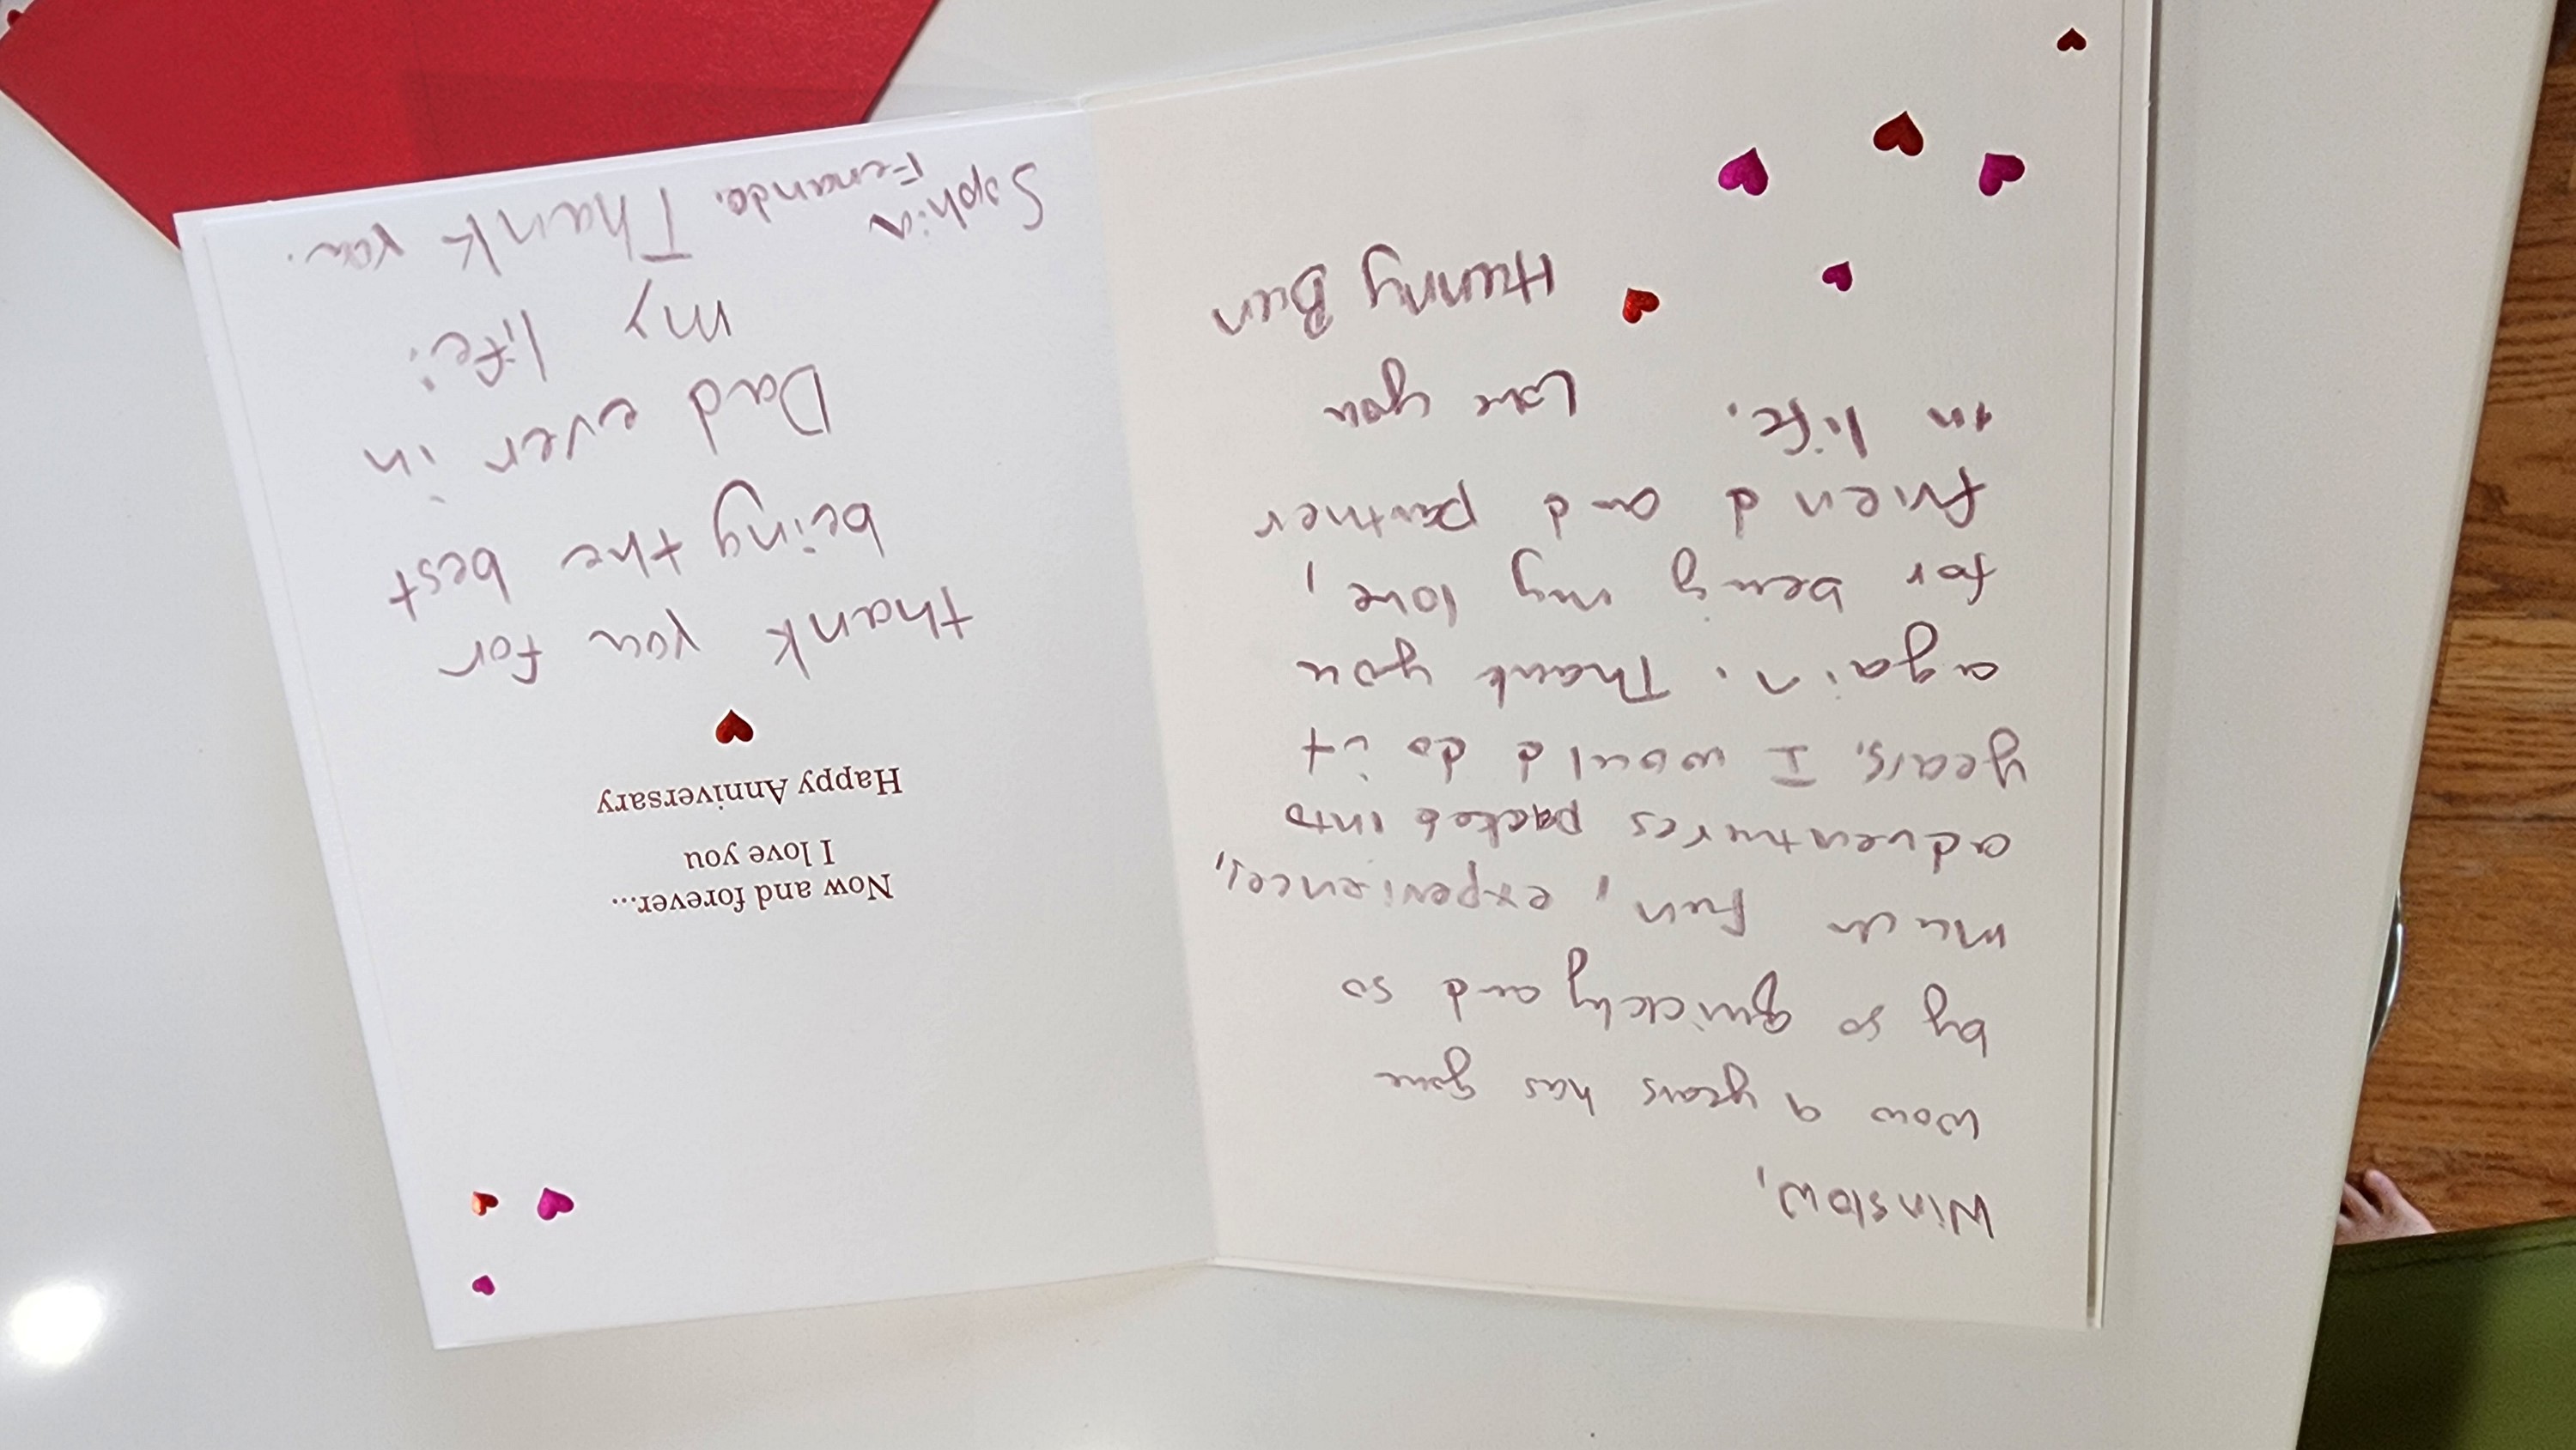 Winslow,
wow 9 years has gone
by so quickly and so
much fun, experiences,
adventures packed into
years. I would do it
again. Thank you
for being my love,
friend and partner
in life. Love you
Hunny Bun
Now and forever...
I love you
Happy Anniversary
thank you for
being the best
Dad ever in
my life!
Sophia
Fernando. Thank you.